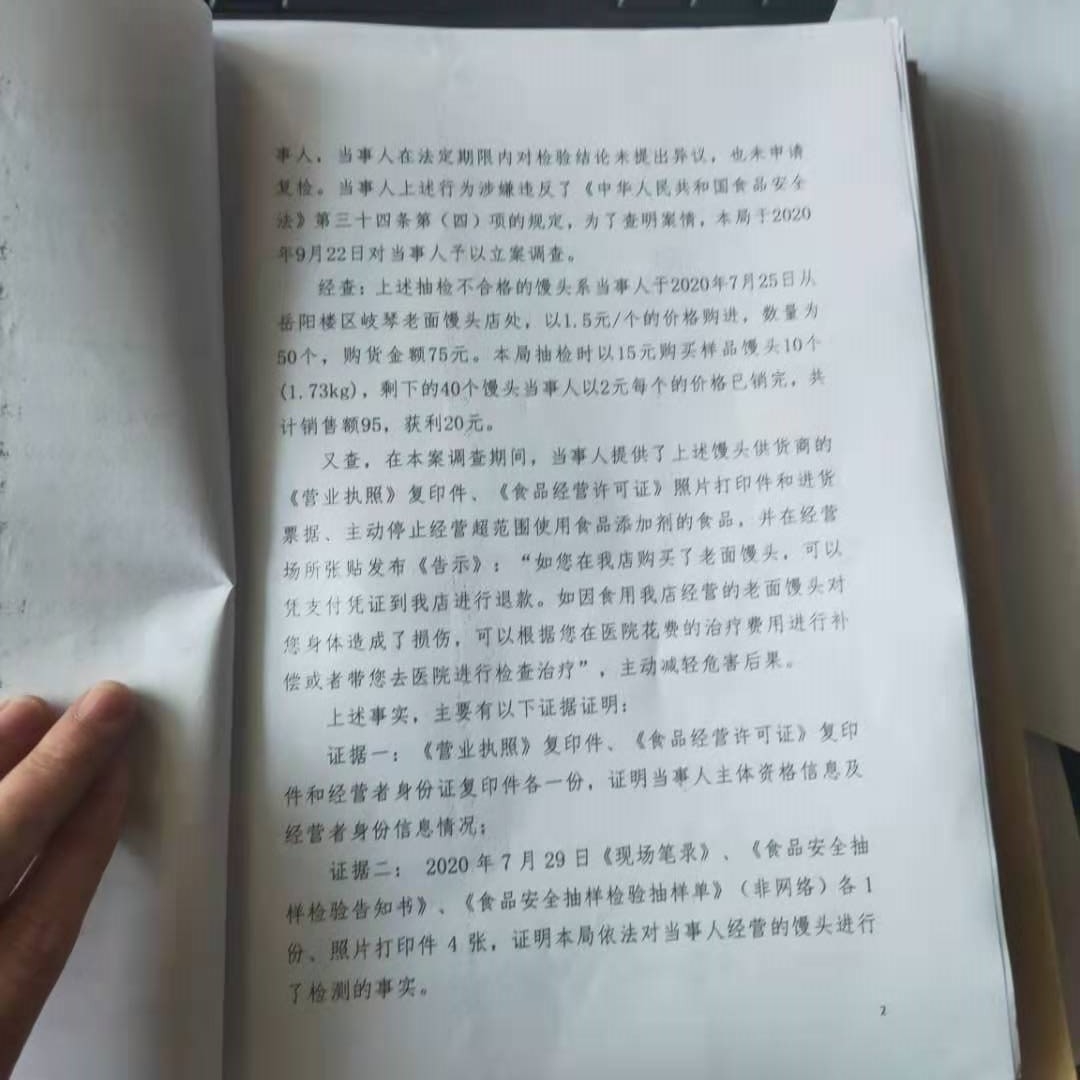 事人，当事人在法定期限内对检验结论未提出异议，也未申请
复检。当事人上述行为涉嫌违反了《中华人民共和国食品安全
法》第三十四条第（四）项的规定，为了查明案情，本局于2020
年9月22日对当事人予以立案调查。
经查：上述抽检不合格的馒头系当事人于2020年7月25日从
岳阳楼区岐琴老面馒头店处，以1.5元/个的价格购进，数量为
50个，购货金额75元。本局抽检时以15元购买样品馒头10个
(1.73kg)，剩下的40个馒头当事人以2元每个的价格已销完，共
计销售额95，获利20元。
又查，在本案调查期间，当事人提供了上述馒头供货商的
《营业执照》复印件、《食品经营许可证》照片打印件和进货
票据、主动停止经营超范围使用食品添加剂的食品，并在经营
场所张贴发布《告示》：“如您在我店购买了老面馒头，可以
凭支付凭证到我店进行退款。如因食用我店经营的老面馒头对
您身体造成了损伤，可以根据您在医院花费的治疗费用进行补
偿或者带您去医院进行检查治疗”，主动减轻危害后果。
上述事实，主要有以下证据证明：
证据一：《营业执照》复印件、《食品经营许可证》复印
件和经营者身份证复印件各一份，证明当事人主体资格信息及
经营者身份信息情况；
证据二： 2020 年 7 月 29 日《现场笔录》、《食品安全抽
样检验告知书》、《食品安全抽样检验抽样单》（非网络）各 1
份、照片打印件 4 张，证明本局依法对当事人经营的馒头进行
了检测的事实。
2